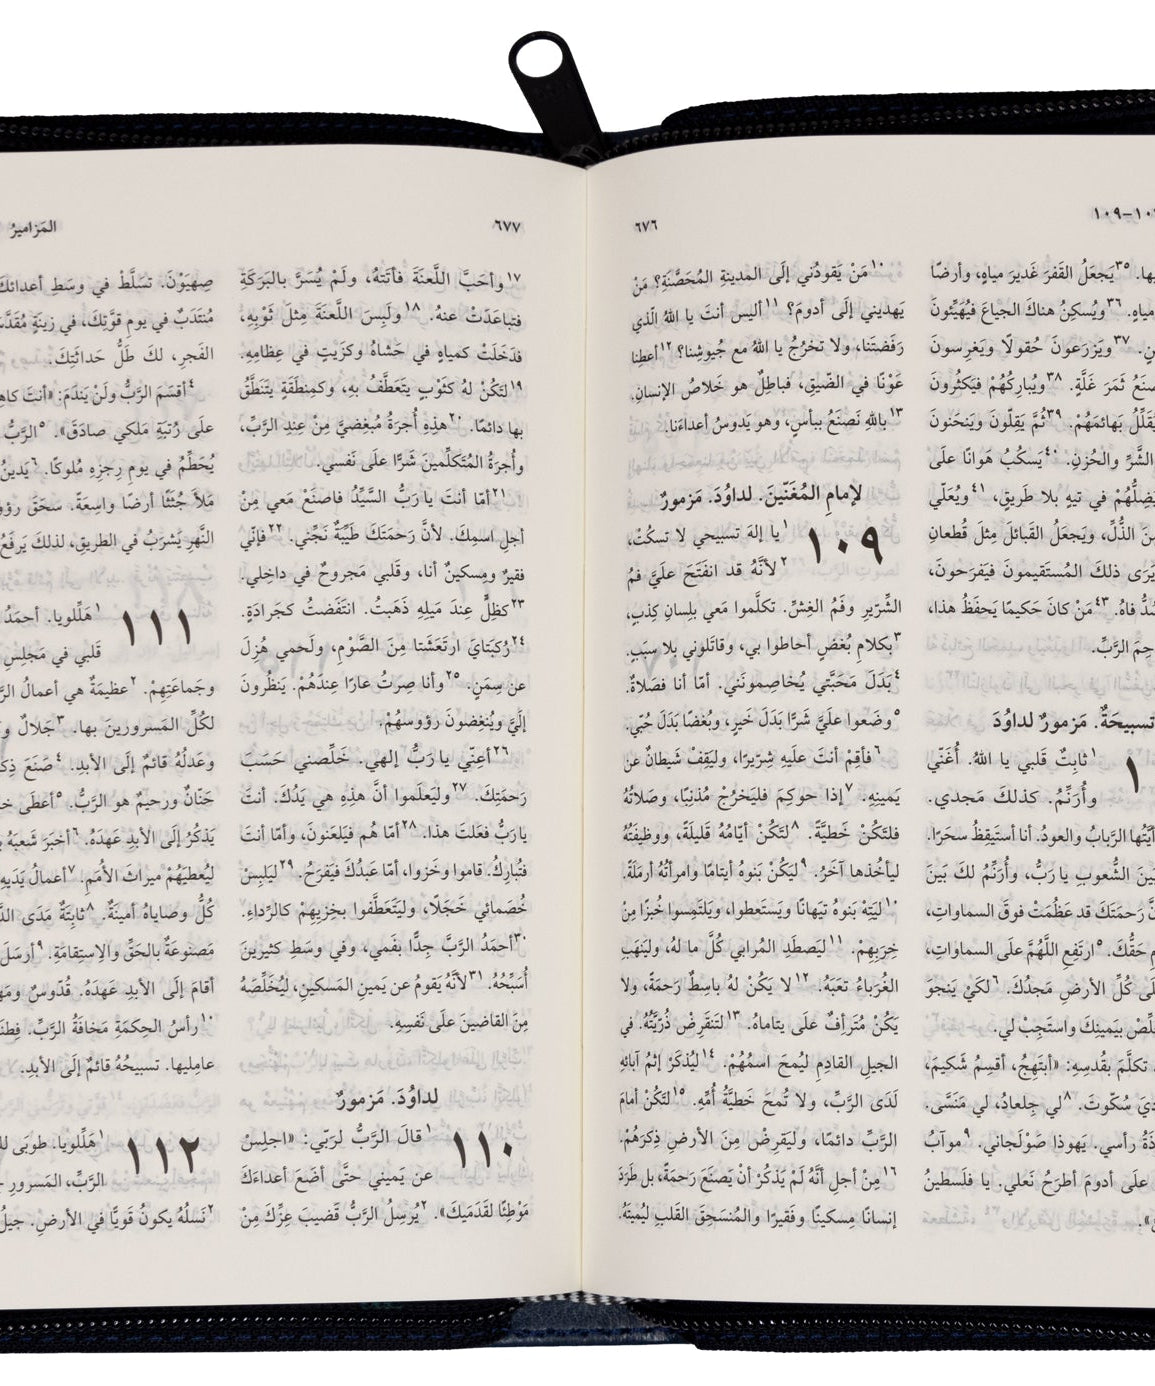 ١٠٩
٦٧٦
يَجعَلُ القَفرَ غَديرَ مياهٍ، وأرضًا
مياهٍ. ٣٦ ويُسكِنُ هناكَ الجياعَ فيُهَيِّئونَ
٣٧ ويَزرَعونَ حُقولًا ويَغرِسونَ
ثَمَرَ غَلَّةٍ. ٣٨ ويُبارِكُهُمْ فيَكثُرونَ
يُقَلِّلُ بَهائمَهُمْ. ٣٩ ثُمَّ يَقِلّونَ ويَنحَنونَ
الشَّرِّ والحُزنِ. ٤٠ يَسكُبُ هَوانًا علَى
يُضِلُّهُمْ في تيهٍ بلا طَريقٍ، ٤١ ويُعَلّي
الذُّلِّ، ويَجعَلُ القَبائلَ مِثلَ قُطعانِ
يَرَى ذلكَ المُستَقيمونَ فيَفرَحونَ،
فاهُ. ٤٣ مَنْ كانَ حَكيمًا يَحفَظُ هذا،
الرَّبِّ.
تسبيحَةٌ. مَزمورٌ لداوُدَ
١ ثابِتٌ قَلبي يا اللهُ. أُغَنّي
وأُرَنِّمُ. كذلكَ مَجدي.
أيَّتُها الرَّبابُ والعودُ. أنا أستَيقِظُ سحَرًا.
بَينَ الشُّعوبِ يا رَبُّ، وأُرَنِّمُ لكَ بَينَ
رَحمَتَكَ قد عَظُمَتْ فوقَ السماواتِ،
حَقُّكَ. ٥ ارتَفِعِ اللَّهُمَّ علَى السماواتِ،
كُلِّ الأرضِ مَجدُكَ. ٦ لكَيْ يَنجوَ
بيَمينِكَ واستَجِبْ لي.
تكلَّمَ بقُدسِهِ: «أبتَهِجُ، أقسِمُ شَكيمَ،
سُكّوتَ. ٨ لي جِلعادُ، لي مَنَسَّى.
رأسي. يَهوذا صَوْلَجاني. ٩ موآبُ
علَى أدومَ أطرَحُ نَعلي. يا فلَسطينُ
١٠ مَنْ يَقودُني إلَى المدينةِ المُحَصَّنَةِ؟ مَنْ
يَهديني إلَى أدومَ؟ ١١ أليس أنتَ يا اللهُ الّذي
رَفَضتَنا، ولا تخرُجُ يا اللهُ مع جُيوشِنا؟ ١٢ أعطِنا
عَوْنًا في الضّيقِ، فباطِلٌ هو خَلاصُ الإنسانِ.
١٣ باللهِ نَصنَعُ ببأسٍ، وهو يَدوسُ أعداءَنا.
لإمامِ المُغَنّينَ. لداوُدَ. مَزمورٌ
١٠٩ ١ يا إلهَ تسبيحي لا تسكُتْ،
٢ لأنَّهُ قد انفَتَحَ علَيَّ فمُ
الشِّرّيرِ وفَمُ الغِشِّ. تكلَّموا مَعي بلِسانِ كِذبٍ،
٣ بكلامِ بُغضٍ أحاطوا بي، وقاتَلوني بلا سبَبٍ.
٤ بَدَلَ مَحَبَّتي يُخاصِمونَني. أمّا أنا فصَلاةٌ.
٥ وضَعوا علَيَّ شَرًّا بَدَلَ خَيرٍ، وبُغضًا بَدَلَ حُبّي.
٦ فأقِمْ أنتَ علَيهِ شِرّيرًا، وليَقِفْ شَيطانٌ عن
يَمينِهِ. ٧ إذا حوكِمَ فليَخرُجْ مُذنِبًا، وصَلاتُهُ
فلتَكُنْ خَطيَّةً. ٨ لتَكُنْ أيّامُهُ قَليلَةً، ووظيفَتُهُ
ليأخُذها آخَرُ. ٩ ليَكُنْ بَنوهُ أيتامًا وامرأتُهُ أرمَلَةً.
١٠ ليَتِهْ بَنوهُ تيَهانًا ويَستَعطوا، ويَلتَمِسوا خُبزًا مِنْ
خِرَبِهِمْ. ١١ ليَصطَدِ المُرابي كُلَّ ما لهُ، وليَنهَبِ
الغُرَباءُ تعَبَهُ. ١٢ لا يَكُنْ لهُ باسِطٌ رَحمَةً، ولا
يَكُنْ مُتَرأفٌ علَى يتاماهُ. ١٣ لتَنقَرِضْ ذُرّيَّتُهُ. في
الجيلِ القادِمِ ليُمحَ اسمُهُمْ. ١٤ ليُذكَرْ إثمُ آبائهِ
لَدَى الرَّبِّ، ولا تُمحَ خَطيَّةُ أُمِّهِ. ١٥ لتَكُنْ أمامَ
الرَّبِّ دائمًا، وليَقرِضْ مِنَ الأرضِ ذِكرَهُمْ.
١٦ مِنْ أجلِ أنَّهُ لَمْ يَذكُرْ أنْ يَصنَعَ رَحمَةً، بل طَرَدَ
إنسانًا مِسكينًا وفَقيرًا والمُنسَحِقَ القَلبِ ليُميتَهُ.
٦٧٧
المَزاميرُ
١٧ وأحَبَّ اللَّعنَةَ فأتَتهُ، ولَمْ يُسَرَّ بالبَرَكَةِ
فتباعَدَتْ عنهُ. ١٨ ولَبِسَ اللَّعنَةَ مِثلَ ثَوْبِهِ،
فدَخَلَتْ كمياهٍ في حَشاهُ وكزَيتٍ في عِظامِهِ.
١٩ لتَكُنْ لهُ كثَوْبٍ يتَعَطَّفُ بهِ، وكمِنطَقَةٍ يتَنَطَّقُ
بها دائمًا. ٢٠ هذِهِ أُجرَةُ مُبغِضيَّ مِنْ عِندِ الرَّبِّ،
وأُجرَةُ المُتَكلِّمينَ شَرًّا علَى نَفسي.
٢١ أمّا أنتَ يا رَبُّ السَّيِّدُ فاصنَعْ مَعي مِنْ
أجلِ اسمِكَ. لأنَّ رَحمَتَكَ طَيِّبَةٌ نَجِّني. ٢٢ فإنّي
فقيرٌ ومِسكينٌ أنا، وقَلبي مَجروحٌ في داخِلي.
٢٣ كظِلٍّ عِندَ مَيلِهِ ذَهَبتُ. انتَفَضتُ كجَرادَةٍ.
٢٤ رُكبَتايَ ارتَعَشَتا مِنَ الصَّوْمِ، ولَحمي هُزِلَ
عن سِمَنٍ. ٢٥ وأنا صِرتُ عارًا عِندَهُمْ. يَنظُرونَ
إلَيَّ ويُنغِضونَ رؤوسهُمْ.
٢٦ أعِنّي يا رَبُّ إلهي. خَلِّصني حَسَبَ
رَحمَتِكَ. ٢٧ وليَعلَموا أنَّ هذِهِ هي يَدُكَ. أنتَ
يا رَبُّ فعَلتَ هذا. ٢٨ أمّا هُم فيَلعَنونَ، وأمّا أنتَ
فتُبارِكُ. قاموا وخَزوا، أمّا عَبدُكَ فيَفرَحُ. ٢٩ ليَلبِسْ
خُصَمائي خَجَلًا، وليَتَعَطَّفوا بخِزيِهِمْ كالرِّداءِ.
٣٠ أحمَدُ الرَّبَّ جِدًّا بفَمي، وفي وسَطِ كثيرينَ
أُسَبِّحُهُ. ٣١ لأنَّهُ يَقومُ عن يَمينِ المَسكينِ، ليُخَلِّصَهُ
مِنَ القاضينَ علَى نَفسِهِ.
لداوُدَ. مَزمورٌ
١١٠ ١ قالَ الرَّبُّ لرَبّي: «اجلِسْ
عن يَميني حتَّى أضَعَ أعداءَكَ
مَوْطِئًا لقَدَمَيكَ». ٢ يُرسِلُ الرَّبُّ قَضيبَ عِزِّكَ مِنْ
صِهيَوْنَ. تسَلَّطْ في وسَطِ أعدائكَ
مُنتَدَبٌ في يومِ قوَّتِكَ، في زينَةٍ
الفَجرِ، لكَ طَلُّ حَداثَتِكَ.
٤ أقسَمَ الرَّبُّ ولَنْ يَندَمَ: «أنتَ
علَى رُتبَةِ مَلكي صادَقَ». ٥ الرَّبُّ
يُحَطِّمُ في يومِ رِجزِهِ مُلوكًا. ٦ يَدينُ
مَلأَ جُثَثًا أرضًا واسِعَةً. سحَقَ
النَّهرِ يَشرَبُ في الطريقِ، لذلكَ يَرفَعُ
١١١ ١ هَلِّلويا. أحمَدُ
قَلبي في مَجلِسِ
وجَماعَتِهِمْ. ٢ عظيمَةٌ هي أعمالُ
لكُلِّ المَسرورينَ بها. ٣ جَلالٌ
وعَدلُهُ قائمٌ إلَى الأبدِ. ٤ صَنَعَ
حَنّانٌ ورحيمٌ هو الرَّبُّ. ٥ أعطَى
يَذكُرُ إلَى الأبدِ عَهدَهُ. ٦ أخبَرَ شَعبَهُ
ليُعطيَهُمْ ميراثَ الأُمَمِ. ٧ أعمالُ يَدَيهِ
كُلُّ وصاياهُ أمينَةٌ. ٨ ثابِتَةٌ مَدَى
مَصنوعَةٌ بالحَقِّ والِاستِقامَةِ. ٩ أرسَلَ
أقامَ إلَى الأبدِ عَهدَهُ. قُدّوسٌ
١٠ رأسُ الحِكمَةِ مَخافَةُ الرَّبِّ.
عامِليها. تسبيحُهُ قائمٌ إلَى الأبدِ.
١١٢ ١ هَلِّلويا. طوبَى
الرَّبِّ، المَسرورِ
٢ نَسلُهُ يكونُ قَويًّا في الأرضِ. جيلُ